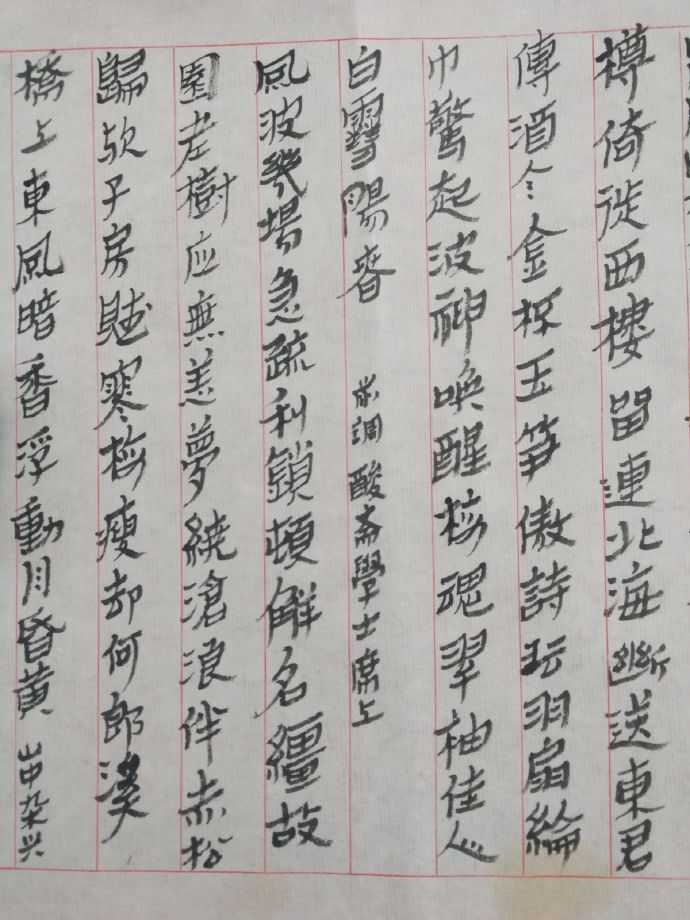 樽倚徙西樓留連北海斷送東君
傳酒令金杯玉笋傲詩坛羽扇綸
巾驚起波神唤醒梅魂翠袖佳人
白雪陽春 調酸齋學士席上
風波幾場急疏利鎖頓解名繮故
園老樹应無恙夢繞滄浪伴赤松
歸欤子房賦寒梅瘦却何郎溪
橋上東風暗香浮動月昏黄 山中杂兴